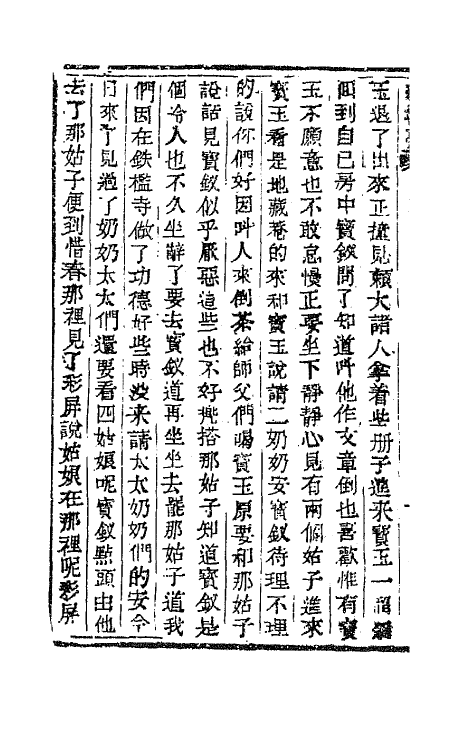 玉退了出來正撞見賴大諸人拿着些册子進來寶玉一溜烟
回到自己房中寶釵問了知道叫他作文章倒也喜歡惟有寶
玉不願意也不敢怠慢正要坐下靜靜心見有兩個姑子進來
寶玉看是地藏菴的來和寶玉說請二奶奶安寶釵待理不理
的說你們好因叫人來倒茶給師父們喝寶玉原要和那姑子
說話見寶釵似乎厭惡這些也不好兜搭那姑子知道寶釵是
個冷人也不久坐辭了要去寶釵道再坐坐去罷那姑子道我
們因在鉄檻寺做了功德好些時没来請太太奶奶們的安今
日來了見過了奶奶太太們還要看四姑娘呢寶釵點頭由他
去了那姑子便到惜春那裡見了彩屏說姑娘在那裡呢彩屏